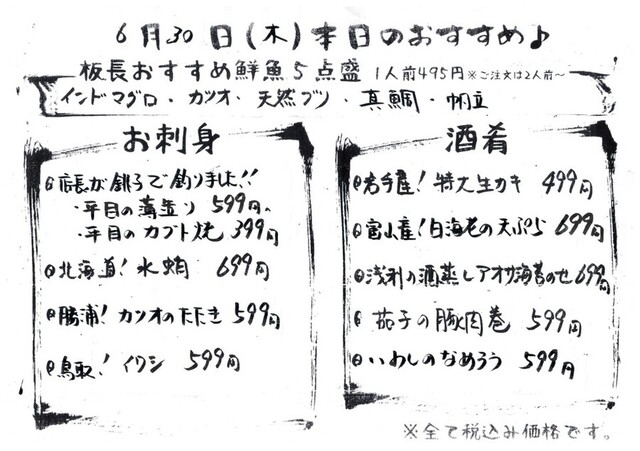 6月30日(木)本日のおすすめ♪
板長おすすめ鮮魚5点盛 1人前495円※ご注文は2人前～
インドマグロ・カツオ・天然ブリ・真鯛・帆立
お刺身
店長が銚子で釣りました!!
・平目の薄造り 599円
・平目のカブト焼 399円
北海道!水蛸 699円
勝浦!カツオのたたき 599円
鳥取!イワシ 599円
酒肴
岩手産!特大生カキ 499円
富山産!白海老の天ぷら 699円
浅利の酒蒸しアオサ海苔のせ 699円
茄子の豚肉巻 599円
いわしのなめろう 599円
※全て税込み価格です。